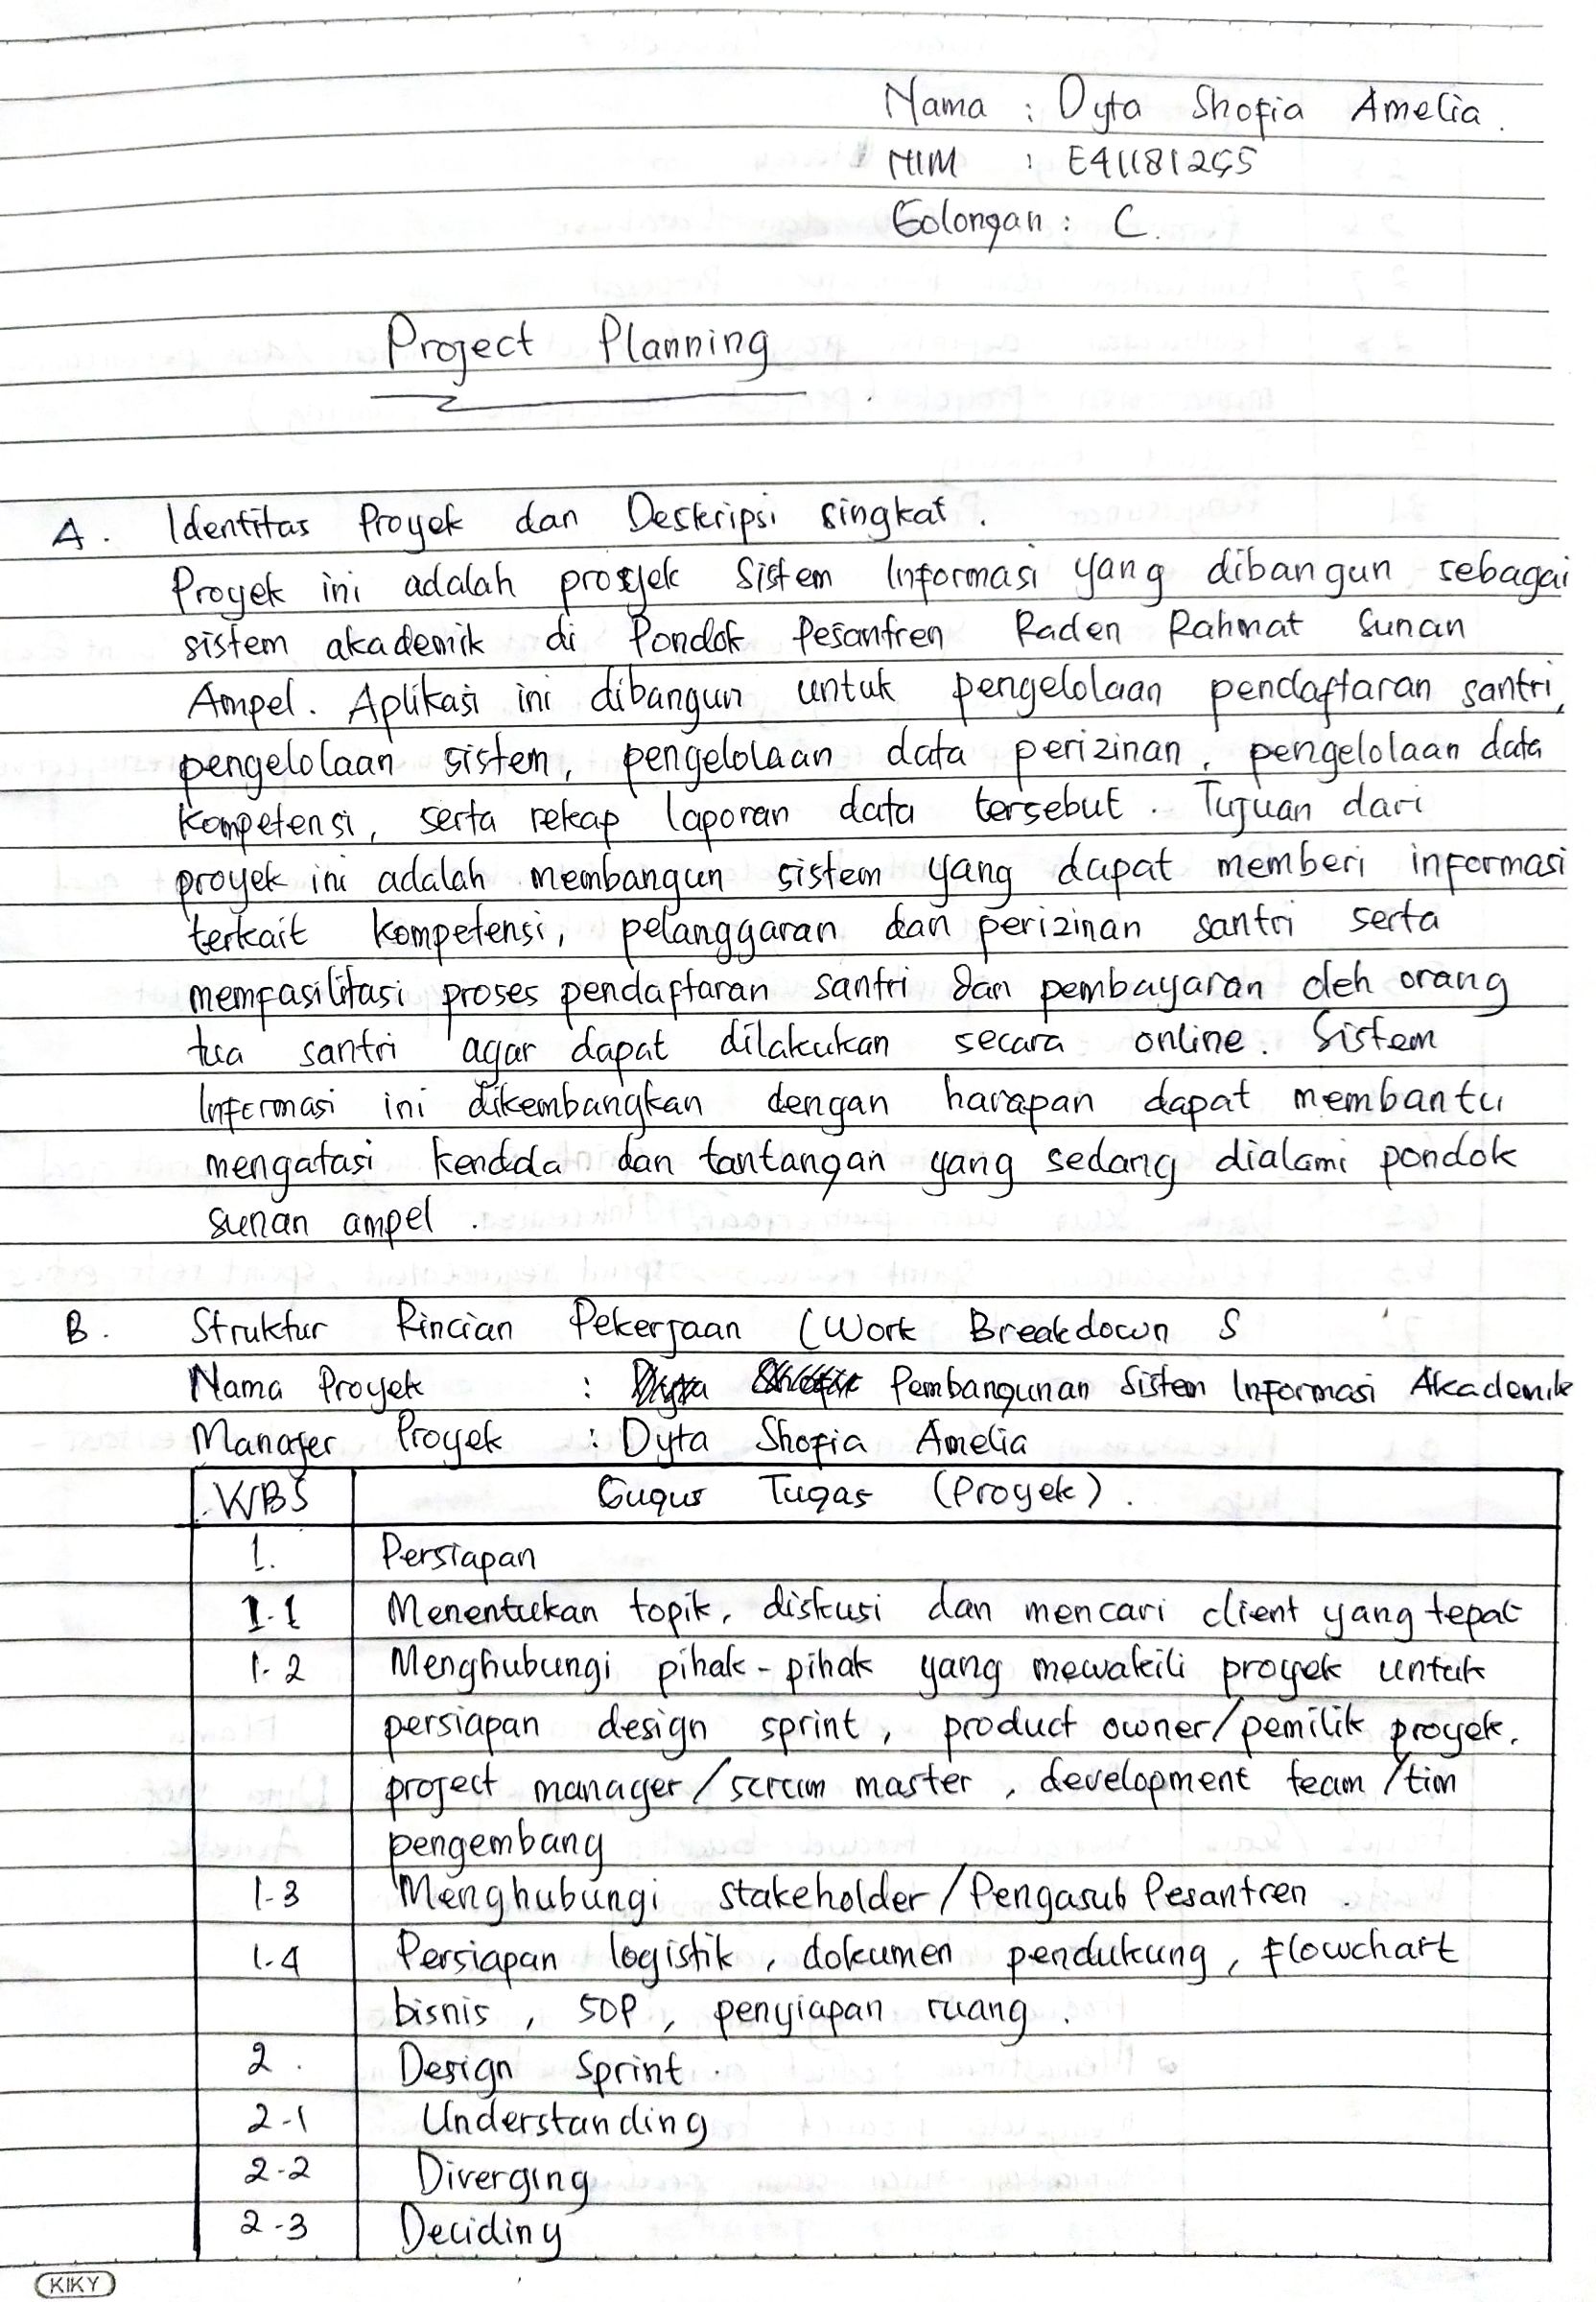 Nama : Dyta Shofia Amelia.
NIM : E41181255
Golongan : C.
Project Planning
A. Identitas Proyek dan Deskripsi singkat.
Proyek ini adalah proyek Sistem Informasi yang dibangun sebagai
sistem akademik di Pondok Pesantren Raden Rahmat Sunan
Ampel. Aplikasi ini dibangun untuk pengelolaan pendaftaran santri,
pengelolaan sistem, pengelolaan data perizinan, pengelolaan data
kompetensi, serta rekap laporan data tersebut. Tujuan dari
proyek ini adalah membangun sistem yang dapat memberi informasi
terkait kompetensi, pelanggaran dan perizinan santri serta
memfasilitasi proses pendaftaran santri dan pembayaran oleh orang
tua santri agar dapat dilakukan secara online. Sistem
Informasi ini dikembangkan dengan harapan dapat membantu
mengatasi kendala dan tantangan yang sedang dialami pondok
sunan ampel.
B. Struktur Rincian Pekerjaan (Work Breakdown S
Nama Proyek : Pembangunan Sistem Informasi Akademik
Manajer Proyek : Dyta Shofia Amelia
WBS Gugus Tugas (Proyek).
1. Persiapan
1.1 Menentukan topik, diskusi dan mencari client yang tepat
1.2 Menghubungi pihak-pihak yang mewakili proyek untuk
persiapan design sprint, product owner/pemilik proyek,
project manager/scrum master, development team/tim
pengembang
1.3 Menghubungi stakeholder/Pengasuh Pesantren.
1.4 Persiapan logistik, dokumen pendukung, flowchart
bisnis, SOP, penyiapan ruang.
2. Design Sprint.
2.1 Understanding
2.2 Diverging
2.3 Deciding
KIKY